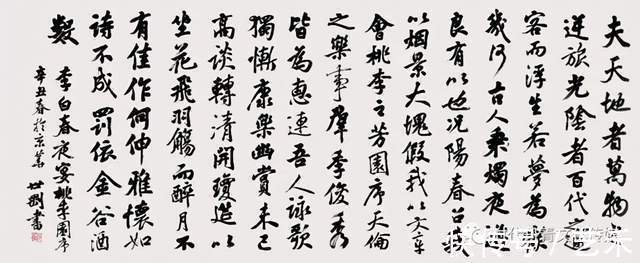 夫天地者萬物之
逆旅光陰者百代之過
客而浮生若夢為歡
幾何古人秉燭夜遊
良有以也況陽春召我
以烟景大塊假我以文章
會桃李之芳園序天倫
之樂事羣季俊秀
皆為惠連吾人詠歌
獨慚康樂幽賞未已
高談轉清開瓊筵以
坐花飛羽觴而醉月不
有佳作何伸雅懷如
詩不成罰依金谷酒
數
李白春夜宴桃李園序
辛丑春於京華
世剛書